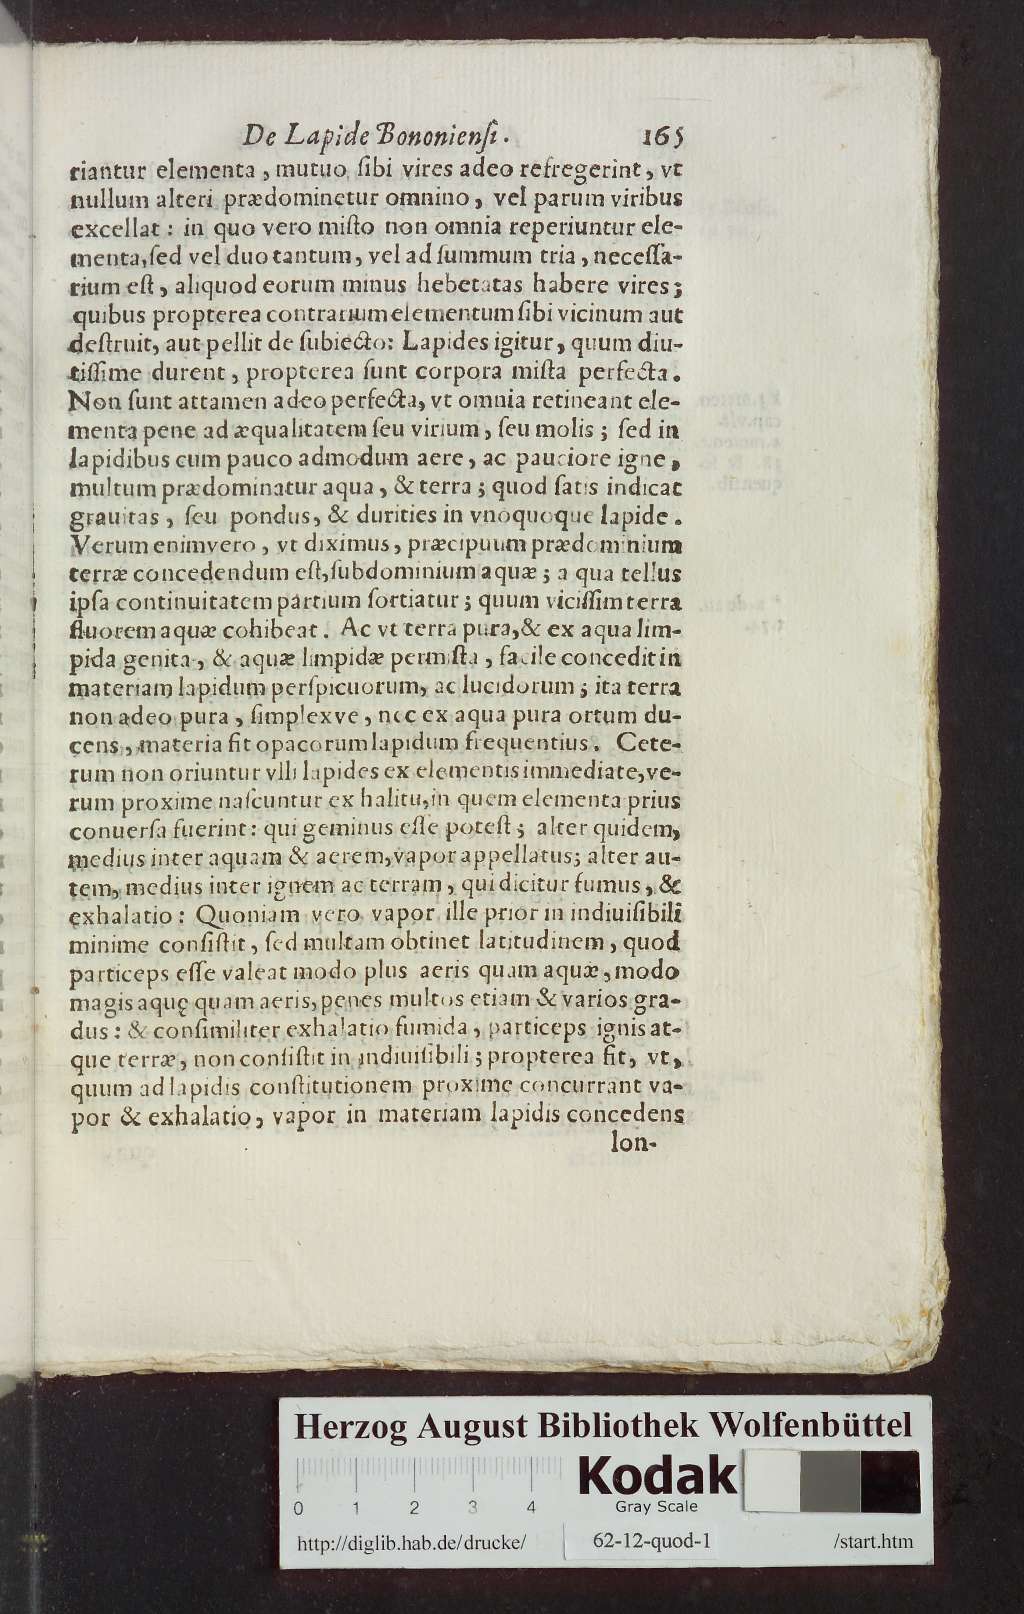 De Lapide Bononienſi. 165
riantur elementa, mutuo ſibi vires adeo refregerint, vt
nullum alteri prædominetur omnino, vel parum viribus
excellat: in quo vero miſto non omnia reperiuntur ele-
menta, ſed vel duo tantum, vel ad ſummum tria, neceſſa-
rium eſt, aliquod eorum minus hebetatas habere vires;
quibus propterea contrarium elementum ſibi vicinum aut
deſtruit, aut pellit de ſubiecto: Lapides igitur, quum diu-
tiſſime durent, propterea ſunt corpora miſta perfecta.
Non ſunt attamen adeo perfecta, vt omnia retineant ele-
menta pene ad æqualitatem ſeu virium, ſeu molis; ſed in
lapidibus cum pauco admodum aere, ac pauciore igne,
multum prædominatur aqua, & terra; quod ſatis indicat
grauitas, ſeu pondus, & durities in vnoquoque lapide.
Verum enimvero, vt diximus, præcipuum prædominium
terræ concedendum eſt, ſubdominium aquæ; a qua tellus
ipſa continuitatem partium ſortiatur; quum viciſſim terra
fluorem aquæ cohibeat. Ac vt terra pura, & ex aqua lim-
pida genita, & aquæ limpidæ permiſta, facile concedit in
materiam lapidum perſpicuorum, ac lucidorum; ita terra
non adeo pura, ſimplexve, nec ex aqua pura ortum du-
cens, materia fit opacorum lapidum frequentius. Cete-
rum non oriuntur vlli lapides ex elementis immediate, ve-
rum proxime naſcuntur ex halitu, in quem elementa prius
conuerſa fuerint: qui geminus eſſe poteſt; alter quidem,
medius inter aquam & aerem, vapor appellatus; alter au-
tem, medius inter ignem ac terram, qui dicitur fumus, &
exhalatio: Quoniam vero vapor ille prior in indiuiſibili
minime conſiſtit, ſed multam obtinet latitudinem, quod
particeps eſſe valeat modo plus aeris quam aquæ, modo
magis aquę quam aeris, penes multos etiam & varios gra-
dus: & conſimiliter exhalatio fumida, particeps ignis at-
que terræ, non conſiſtit in indiuiſibili; propterea fit, vt,
quum ad lapidis conſtitutionem proxime concurrant va-
por & exhalatio, vapor in materiam lapidis concedens
lon-
Herzog August Bibliothek Wolfenbüttel
Kodak
Gray Scale
0 1 2 3 4
http://diglib.hab.de/drucke/ 62-12-quod-1 /start.htm